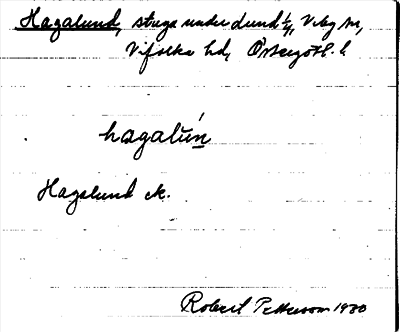 Hagalund, stuga under Lund 1/4, Viby sn,
Vifolka hd, Östergötl. l.
hagalún
Hagalund ek.
Robert Pettersson 1930